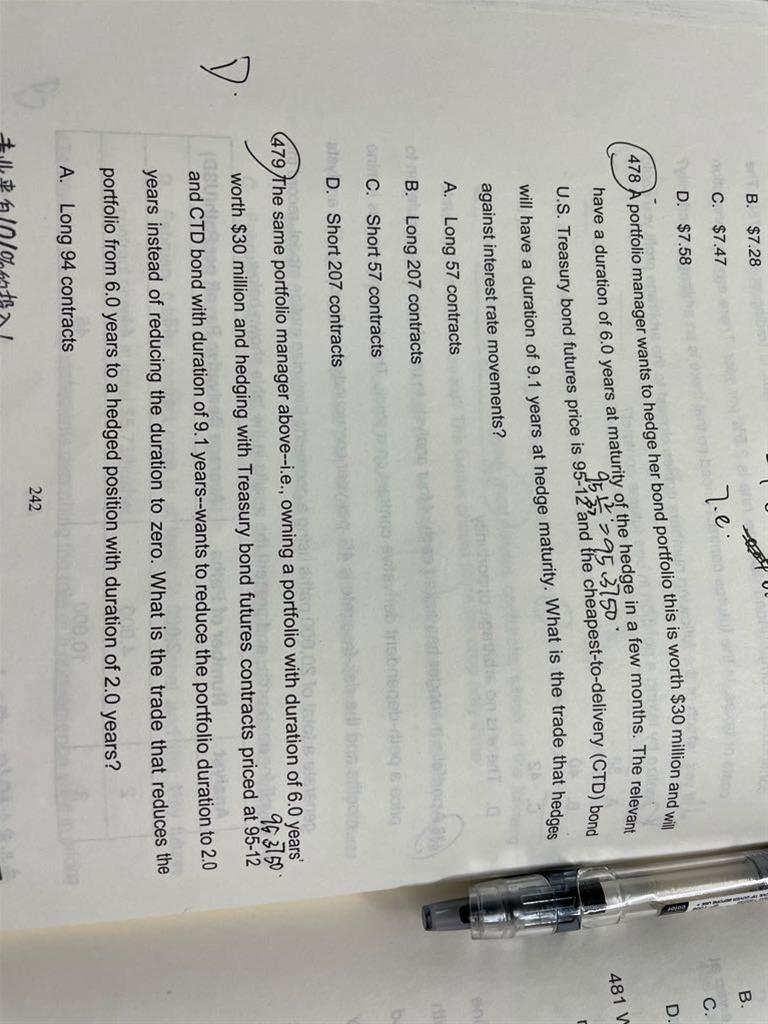 B. $7.28
C. $7.47
D. $7.58
7.e.
478 A portfolio manager wants to hedge her bond portfolio this is worth $30 million and will
have a duration of 6.0 years at maturity of the hedge in a few months. The relevant
95 12/32 = 95.3750.
U.S. Treasury bond futures price is 95-12 and the cheapest-to-delivery (CTD) bond
will have a duration of 9.1 years at hedge maturity. What is the trade that hedges
against interest rate movements?
A. Long 57 contracts
B. Long 207 contracts
C. Short 57 contracts
D. Short 207 contracts
D.
479 The same portfolio manager above--i.e., owning a portfolio with duration of 6.0 years
95.3750.
worth $30 million and hedging with Treasury bond futures contracts priced at 95-12
and CTD bond with duration of 9.1 years--wants to reduce the portfolio duration to 2.0
years instead of reducing the duration to zero. What is the trade that reduces the
portfolio from 6.0 years to a hedged position with duration of 2.0 years?
A. Long 94 contracts
242
B.
C.
D.
481 W
color